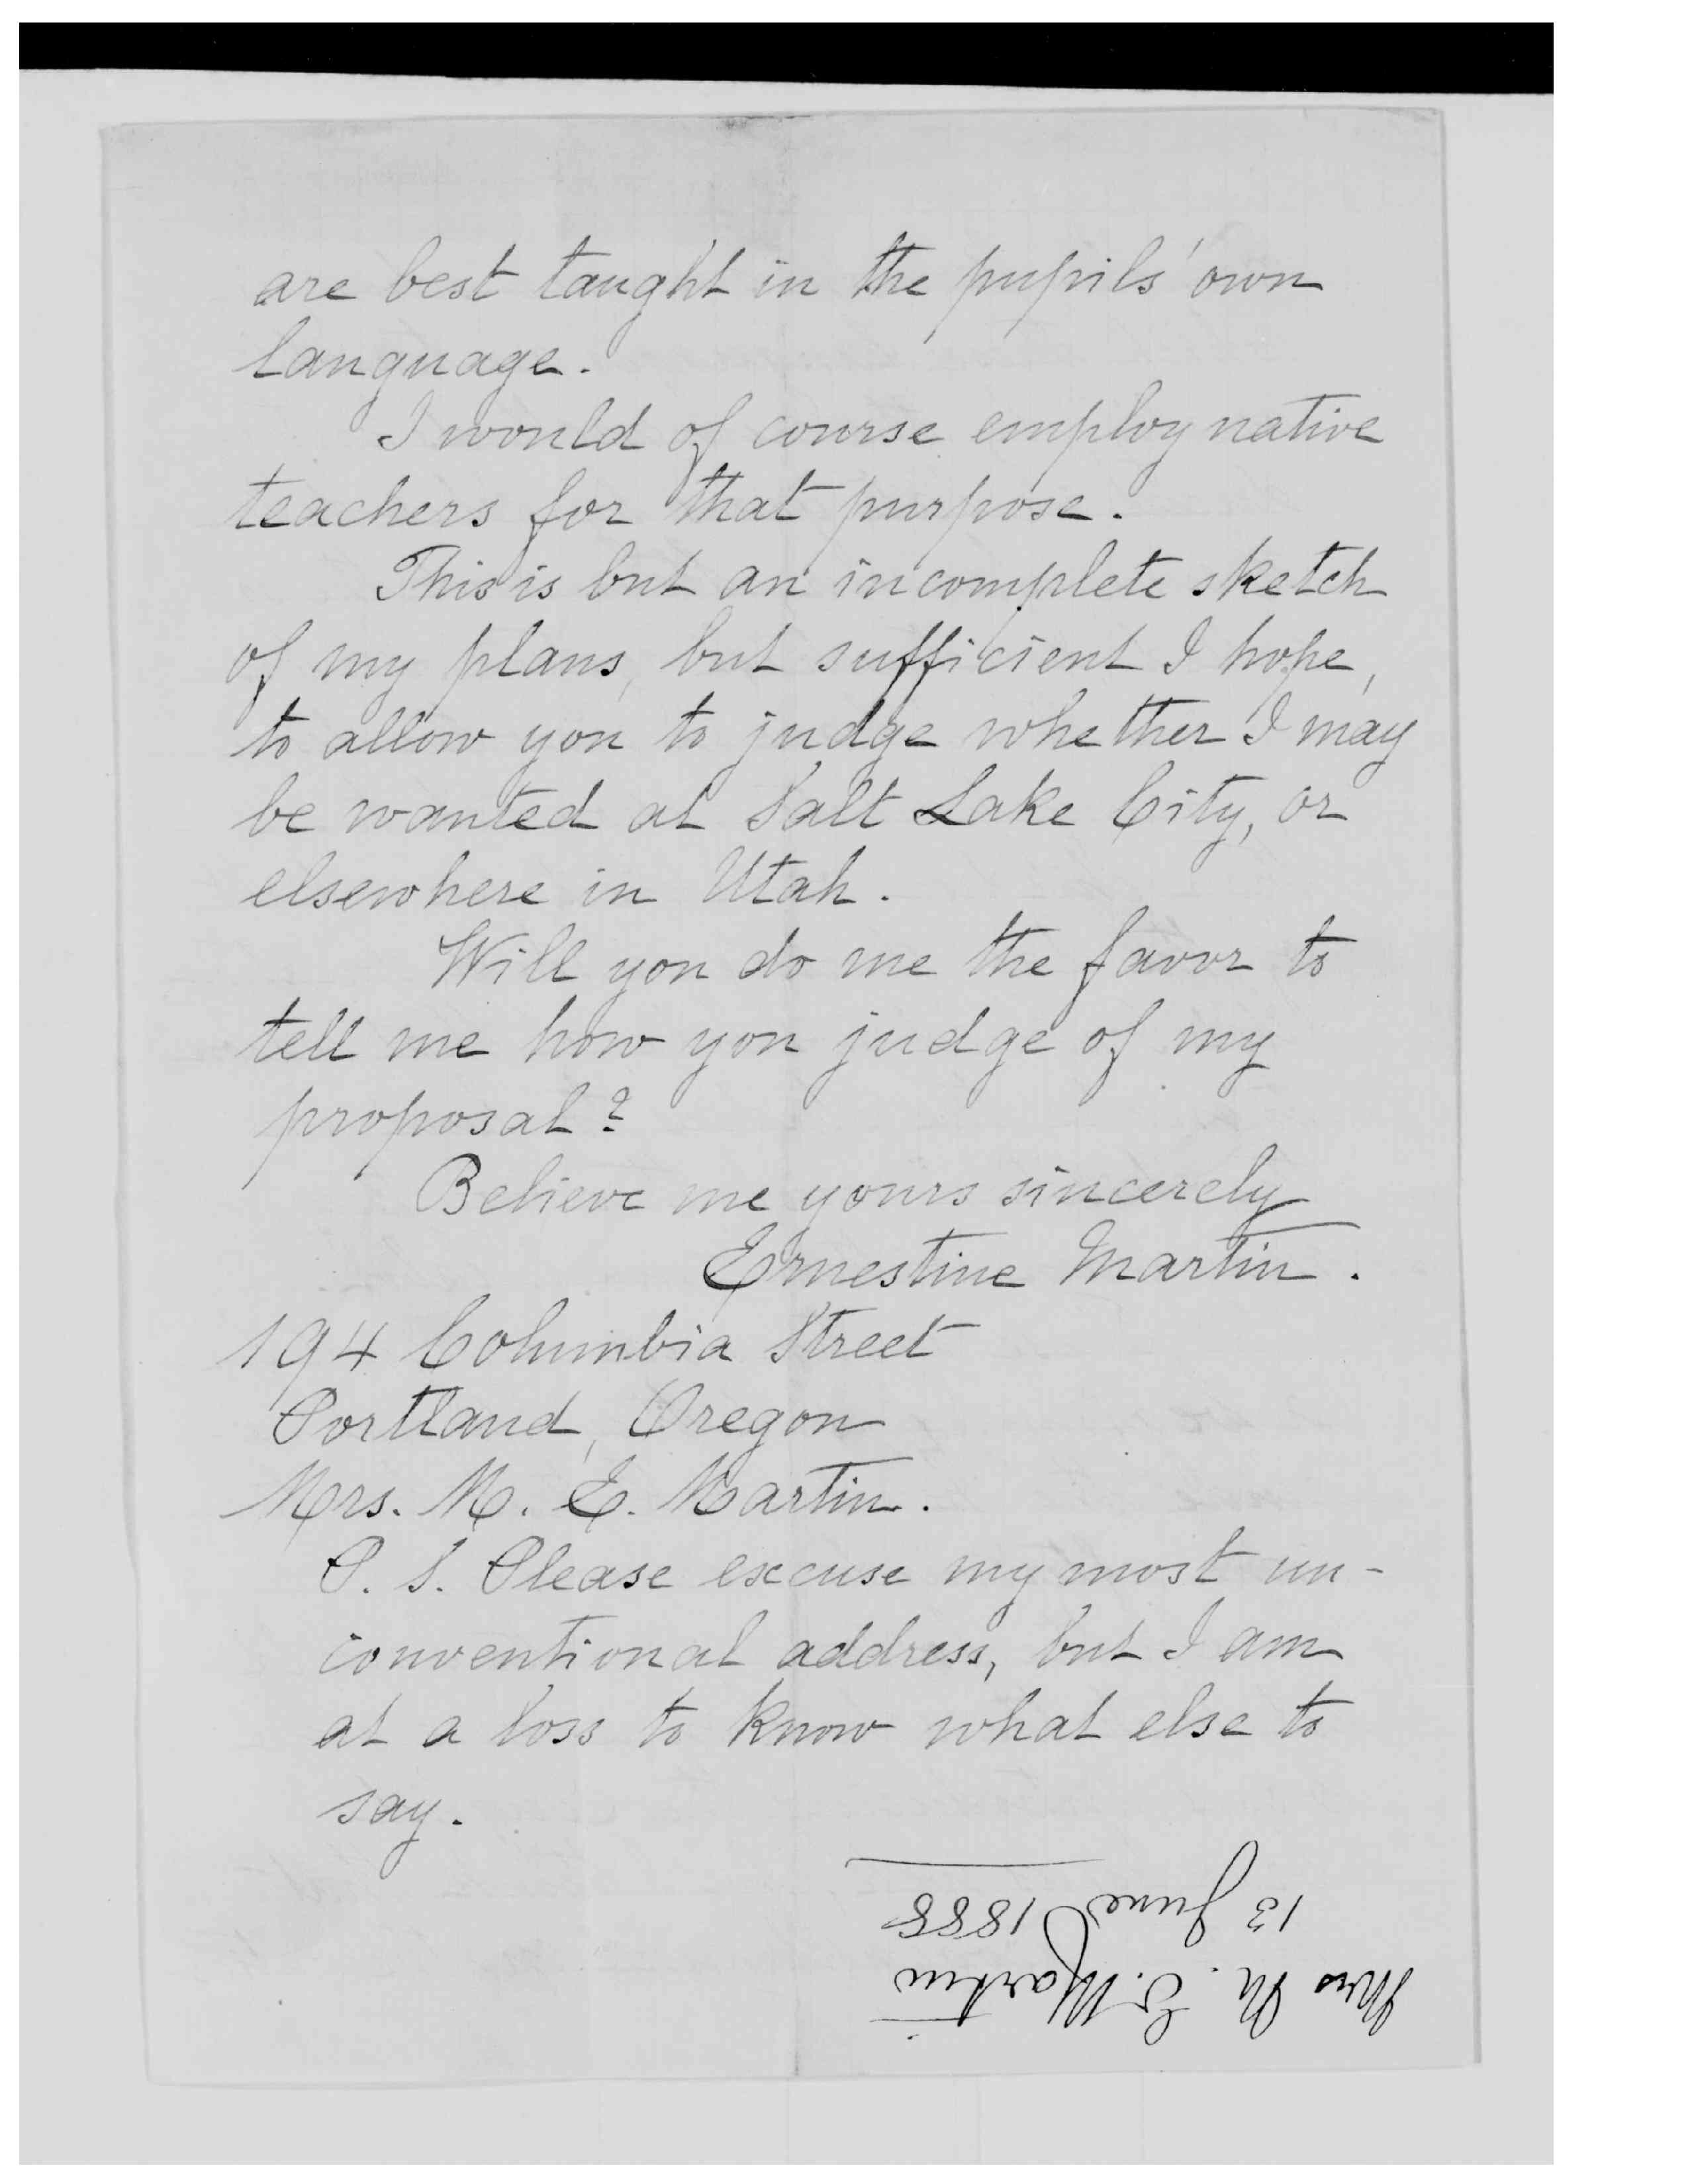 are best taught in the pupils' own
language.
I would of course employ native
teachers for that purpose.
This is but an incomplete sketch
of my plans, but sufficient I hope,
to allow you to judge whether I may
be wanted at Salt Lake City, or
elsewhere in Utah.
Will you do me the favor to
tell me how you judge of my
proposal?
Believe me yours sincerely
Ernestine Martin.
194 Columbia Street
Portland, Oregon
Mrs. M. E. Martin.
P. S. Please excuse my most un-
conventional address, but I am
at a loss to know what else to
say.
Mrs M. E. Martin
13 June 1888